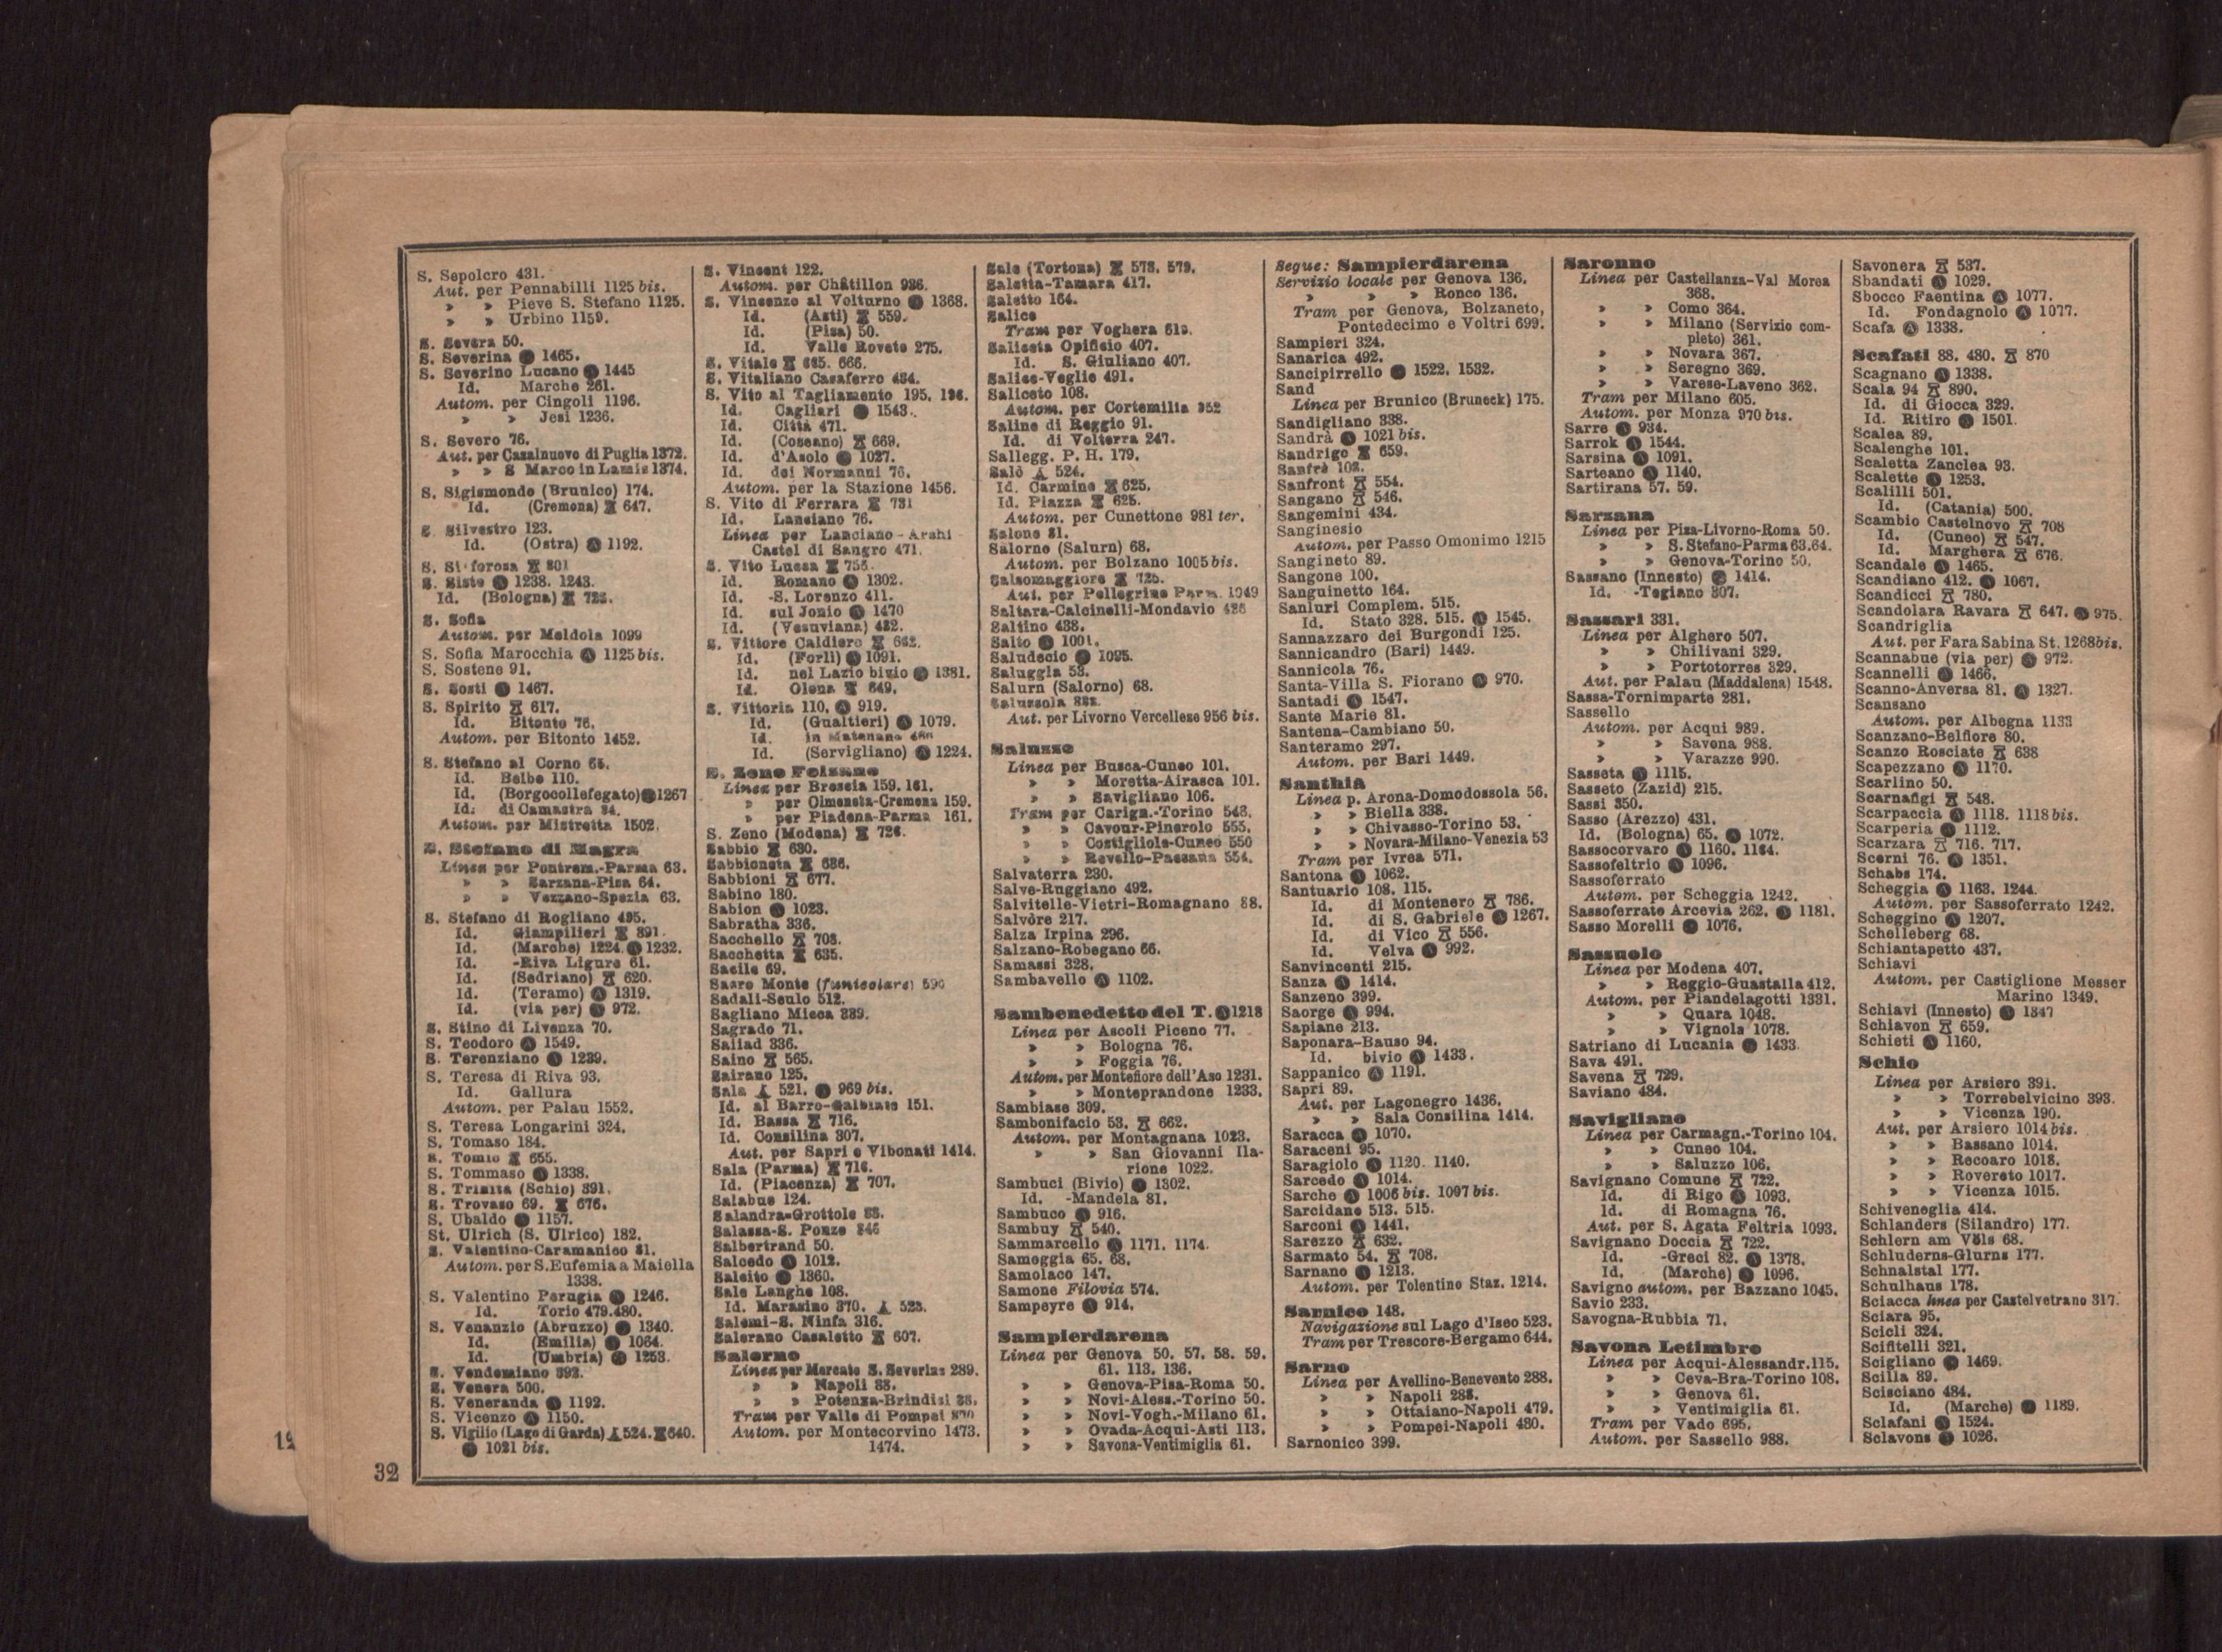 S. Sepolcro 431.
Aut. per Pennabilli 1125 bis.
» » Pieve S. Stefano 1125.
» » Urbino 1159.
S. Severa 50.
S. Severina Ⓐ 1465.
S. Severino Lucano Ⓐ 1445
Id. Marche 261.
Autom. per Cingoli 1196.
» » Jesi 1236.
S. Severo 76.
Aut. per Casalnuovo di Puglia 1372.
» » S Marco in Lamis 1374.
S. Sigismondo (Brunico) 174.
Id. (Cremona) 647.
S. Silvestro 123.
Id. (Ostra) Ⓐ 1192.
S. Si forosa 801
S. Sisto Ⓐ 1238. 1243.
Id. (Bologna)
S. Sofia
Autom. per Meldola 1099
S. Sofia Marocchia Ⓐ 1125 bis.
S. Sostene 91.
S. Sosti Ⓐ 1467.
S. Spirito 617.
Id. Bitonto 76.
Autom. per Bitonto 1452.
S. Stefano al Corno 65.
Id. Belbo 110.
Id. (Borgocollefegato) Ⓐ 1267
Id. di Camastra 94.
Autom. per Mistretta 1502.
S. Stefano di Magra
Linea per Pontrem.-Parma 63.
» » Sarzana-Pisa 64.
» » Vezzano-Spezia 63.
S. Stefano di Rogliano 495.
Id. Giampilieri 891.
Id. (Marche) 1224. Ⓐ 1232.
Id. -Riva Ligure 61.
Id. (Sedriano) 620.
Id. (Teramo) Ⓐ 1319.
Id. (via per) Ⓐ 972.
S. Stino di Livenza 70.
S. Teodoro Ⓐ 1549.
S. Terenziano Ⓐ 1239.
S. Teresa di Riva 93.
Id. Gallura
Autom. per Palau 1552.
S. Teresa Longarini 324.
S. Tomaso 184.
S. Tomio 655.
S. Tommaso Ⓐ 1338.
S. Trinità (Schio) 391.
S. Trovaso 69. 676.
S. Ubaldo Ⓐ 1157.
St. Ulrich (S. Ulrico) 182.
S. Valentino-Caramanico 81.
Autom. per S. Eufemia a Maiella
1338.
S. Valentino Perugia Ⓐ 1246.
Id. Torio 479.480.
S. Venanzio (Abruzzo) Ⓐ 1340.
Id. (Emilia) Ⓐ 1064.
Id. (Umbria) Ⓐ 1253.
S. Vendemiano 392.
S. Venera 500.
S. Veneranda Ⓐ 1192.
S. Vicenzo Ⓐ 1150.
S. Vigilio (Lago di Garda) 524. 640.
Ⓐ 1021 bis.
S. Vincent 122.
Autom. per Châtillon 936.
S. Vincenzo al Volturno Ⓐ 1368.
Id. (Asti) 559.
Id. (Pisa) 50.
Id. Valle Roveto 275.
S. Vitale 665. 666.
S. Vitaliano Casaferro 484.
S. Vito al Tagliamento 195. 196.
Id. Cagliari Ⓐ 1543.
Id. Città 471.
Id. (Coseano) 669.
Id. d'Asolo Ⓐ 1027.
Id. dei Normanni 76.
Autom. per la Stazione 1456.
S. Vito di Ferrara 731
Id. Lanciano 76.
Linea per Lanciano-Archi
Castel di Sangro 471.
S. Vito Lucca
Id. Romano Ⓐ 1302.
Id. -S. Lorenzo 411.
Id. sul Jonio Ⓐ 1470
Id. (Vesuviana) 482.
S. Vittore Caldiero 642.
Id. (Forlì) Ⓐ 1091.
Id. nel Lazio bivio Ⓐ 1381.
Id. Olona 649.
S. Vittoria 110. Ⓐ 919.
Id. (Gualtieri) Ⓐ 1079.
Id. in Matenano
Id. (Servigliano) Ⓐ 1224.
S. Zeno Folzano
Linea per Brescia 159. 161.
» per Olmeneta-Cremona 159.
» per Piadena-Parma 161.
S. Zeno (Modena) 726.
Sabbio 630.
Sabbioneta 686.
Sabbioni 677.
Sabino 180.
Sabion Ⓐ 1023.
Sabratha 336.
Sacchello 708.
Sacchetta 635.
Sacile 69.
Sacro Monte (funicolare) 590
Sadali-Seulo 512.
Sagliano Micca 339.
Sagrado 71.
Saliad 336.
Saino 565.
Sairano 125.
Sala 521. Ⓐ 969 bis.
Id. al Barro-Galbiate 151.
Id. Bassa 716.
Id. Consilina 307.
Aut. per Sapri e Vibonati 1414.
Sala (Parma) 716.
Id. (Piacenza) 707.
Salabue 124.
Salandra-Grottole 88.
Salassa-S. Ponzo 346
Salbertrand 50.
Salcedo Ⓐ 1012.
Salcito Ⓐ 1360.
Sale Langhe 108.
Id. Marasino 370. 523.
Salemi-S. Ninfa 316.
Salerano Casaletto 607.
Salerno
Linea per Mercato S. Severino 289.
» » Napoli 88.
» » Potenza-Brindisi 88.
Tram per Valle di Pompei 870
Autom. per Montecorvino 1473.
1474.
Sale (Tortona) 578. 579.
Saletta-Tamara 417.
Saletto 164.
Salice
Tram per Voghera 619.
Saliceta Opificio 407.
Id. S. Giuliano 407.
Salice-Veglie 491.
Saliceto 108.
Autom. per Cortemilia 952
Saline di Reggio 91.
Id. di Volterra 247.
Sallegg. P. H. 179.
Salò 524.
Id. Carmine 625.
Id. Piazza 625.
Autom. per Cunettone 981 ter.
Salone 81.
Salorno (Salurn) 68.
Autom. per Bolzano 1005 bis.
Salsomaggiore 725.
Aut. per Pellegrino Parm. 1049
Saltara-Calcinelli-Mondavio 486
Saltino 438.
Salto Ⓐ 1001.
Saludecio Ⓐ 1095.
Saluggia 53.
Salurn (Salorno) 68.
Salussola 338.
Aut. per Livorno Vercellese 956 bis.
Saluzzo
Linea per Busca-Cuneo 101.
» » Moretta-Airasca 101.
» » Savigliano 106.
Tram per Carign.-Torino 548.
» » Cavour-Pinerolo 555.
» » Costigliole-Cuneo 550
» » Revello-Paesana 554.
Salvaterra 230.
Salve-Ruggiano 492.
Salvitelle-Vietri-Romagnano 88.
Salvòre 217.
Salza Irpina 296.
Salzano-Robegano 66.
Samassi 328.
Sambavello Ⓐ 1102.
Sambenedetto del T. Ⓐ 1218
Linea per Ascoli Piceno 77.
» » Bologna 76.
» » Foggia 76.
Autom. per Montefiore dell'Aso 1231.
» » Monteprandone 1233.
Sambiase 309.
Sambonifacio 53. 662.
Autom. per Montagnana 1023.
» » San Giovanni Ila-
rione 1022.
Sambuci (Bivio) Ⓐ 1302.
Id. -Mandela 81.
Sambuco Ⓐ 916.
Sambuy 540.
Sammarcello Ⓐ 1171. 1174.
Samoggia 65. 68.
Samolaco 147.
Samone Filovia 574.
Sampeyre Ⓐ 914.
Sampierdarena
Linea per Genova 50. 57. 58. 59.
61. 113. 136.
» » Genova-Pisa-Roma 50.
» » Novi-Aless.-Torino 50.
» » Novi-Vogh.-Milano 61.
» » Ovada-Acqui-Asti 113.
» » Savona-Ventimiglia 61.
Segue: Sampierdarena
Servizio locale per Genova 136.
» » » Ronco 136.
Tram per Genova, Bolzaneto,
Pontedecimo e Voltri 699.
Sampieri 324.
Sanarica 492.
Sancipirrello Ⓐ 1522. 1532.
Sand
Linea per Brunico (Bruneck) 175.
Sandigliano 338.
Sandrà Ⓐ 1021 bis.
Sandrigo 659.
Sanfrè 108.
Sanfront 554.
Sangano 546.
Sangemini 434.
Sanginesio
Autom. per Passo Omonimo 1215
Sangineto 89.
Sangone 100.
Sanguinetto 164.
Sanluri Complem. 515.
Id. Stato 328. 515. Ⓐ 1545.
Sannazzaro dei Burgondi 125.
Sannicandro (Bari) 1449.
Sannicola 76.
Santa-Villa S. Fiorano Ⓐ 970.
Santadi Ⓐ 1547.
Sante Marie 81.
Santena-Cambiano 50.
Santeramo 297.
Autom. per Bari 1449.
Santhià
Linea p. Arona-Domodossola 56.
» » Biella 338.
» » Chivasso-Torino 53.
» » Novara-Milano-Venezia 53
Tram per Ivrea 571.
Santona Ⓐ 1062.
Santuario 108. 115.
Id. di Montenero 786.
Id. di S. Gabriele Ⓐ 1267.
Id. di Vico 556.
Id. Velva Ⓐ 992.
Sanvincenti 215.
Sanza Ⓐ 1414.
Sanzeno 399.
Saorge Ⓐ 994.
Sapiane 213.
Saponara-Bauso 94.
Id. bivio Ⓐ 1433.
Sappanico Ⓐ 1191.
Sapri 89.
Aut. per Lagonegro 1436.
» » Sala Consilina 1414.
Saracca Ⓐ 1070.
Saraceni 95.
Saragiolo Ⓐ 1120. 1140.
Sarcedo Ⓐ 1014.
Sarche Ⓐ 1006 bis. 1007 bis.
Sarcidano 513. 515.
Sarconi Ⓐ 1441.
Sarezzo 632.
Sarmato 54. 708.
Sarnano Ⓐ 1213.
Autom. per Tolentino Staz. 1214.
Sarnico 148.
Navigazione sul Lago d'Iseo 523.
Tram per Trescore-Bergamo 644.
Sarno
Linea per Avellino-Benevento 288.
» » Napoli 288.
» » Ottaiano-Napoli 479.
» » Pompei-Napoli 480.
Sarnonico 399.
Saronno
Linea per Castellanza-Val Morea
368.
» » Como 364.
» » Milano (Servizio com-
pleto) 361.
» » Novara 367.
» » Seregno 369.
» » Varese-Laveno 362.
Tram per Milano 605.
Autom. per Monza 970 bis.
Sarre Ⓐ 934.
Sarrok Ⓐ 1544.
Sarsina Ⓐ 1091.
Sarteano Ⓐ 1140.
Sartirana 57. 59.
Sarzana
Linea per Pisa-Livorno-Roma 50.
» » S. Stefano-Parma 63.64.
» » Genova-Torino 50.
Sassano (Innesto) Ⓐ 1414.
Id. -Tegiano 307.
Sassari 331.
Linea per Alghero 507.
» » Chilivani 329.
» » Portotorres 329.
Aut. per Palau (Maddalena) 1548.
Sassa-Tornimparte 281.
Sassello
Autom. per Acqui 989.
» » Savona 988.
» » Varazze 990.
Sasseta Ⓐ 1115.
Sasseto (Zazid) 215.
Sassi 350.
Sasso (Arezzo) 431.
Id. (Bologna) 65. Ⓐ 1072.
Sassocorvaro Ⓐ 1160. 1164.
Sassofeltrio Ⓐ 1096.
Sassoferrato
Autom. per Scheggia 1242.
Sassoferrato Arcevia 262. Ⓐ 1181.
Sasso Morelli Ⓐ 1076.
Sassuolo
Linea per Modena 407.
» » Reggio-Guastalla 412.
Autom. per Piandelagotti 1331.
» » Quara 1048.
» » Vignola 1078.
Satriano di Lucania Ⓐ 1433.
Sava 491.
Savena 729.
Saviano 484.
Savigliano
Linea per Carmagn.-Torino 104.
» » Cuneo 104.
» » Saluzzo 106.
Savignano Comune 722.
Id. di Rigo Ⓐ 1093.
Id. di Romagna 76.
Aut. per S. Agata Feltria 1093.
Savignano Doccia 722.
Id. -Greci 82. Ⓐ 1378.
Id. (Marche) Ⓐ 1096.
Savigno autom. per Bazzano 1045.
Savio 233.
Savogna-Rubbia 71.
Savona Letimbro
Linea per Acqui-Alessandr. 115.
» » Ceva-Bra-Torino 108.
» » Genova 61.
» » Ventimiglia 61.
Tram per Vado 695.
Autom. per Sassello 988.
Savonera 537.
Sbandati Ⓐ 1029.
Sbocco Faentina Ⓐ 1077.
Id. Fondagnolo Ⓐ 1077.
Scafa Ⓐ 1338.
Scafati 88. 480. 870
Scagnano Ⓐ 1338.
Scala 94 890.
Id. di Giocca 329.
Id. Ritiro Ⓐ 1501.
Scalea 89.
Scalenghe 101.
Scaletta Zanclea 93.
Scalette Ⓐ 1253.
Scalilli 501.
Id. (Catania) 500.
Scambio Castelnovo 708
Id. (Cuneo) 547.
Id. Marghera 676.
Scandale Ⓐ 1465.
Scandiano 412. Ⓐ 1067.
Scandicci 780.
Scandolara Ravara 647. Ⓐ 975.
Scandriglia
Aut. per Fara Sabina St. 1268 bis.
Scannabue (via per) Ⓐ 972.
Scannelli Ⓐ 1466.
Scanno-Anversa 81. Ⓐ 1327.
Scansano
Autom. per Albegna 1133
Scanzano-Belfiore 80.
Scanzo Rosciate 638
Scapezzano Ⓐ 1170.
Scarlino 50.
Scarnafigi 548.
Scarpaccia Ⓐ 1118. 1118 bis.
Scarperia Ⓐ 1112.
Scarzara 716. 717.
Scerni 76. Ⓐ 1351.
Schabs 174.
Scheggia Ⓐ 1163. 1244.
Autom. per Sassoferrato 1242.
Scheggino Ⓐ 1207.
Schelleberg 68.
Schiantapetto 437.
Schiavi
Autom. per Castiglione Messer
Marino 1349.
Schiavi (Innesto) Ⓐ 1347
Schiavon 659.
Schieti Ⓐ 1160.
Schio
Linea per Arsiero 391.
» » Torrebelvicino 393.
» » Vicenza 190.
Aut. per Arsiero 1014 bis.
» » Bassano 1014.
» » Recoaro 1018.
» » Rovereto 1017.
» » Vicenza 1015.
Schiveneglia 414.
Schlanders (Silandro) 177.
Schlern am Völs 68.
Schluderns-Glurns 177.
Schnalstal 177.
Schulhaus 178.
Sciacca linea per Castelvetrano 317.
Sciara 95.
Scicli 324.
Scifitelli 321.
Scigliano Ⓐ 1469.
Scilla 89.
Scisciano 484.
Id. (Marche) Ⓐ 1189.
Sclafani Ⓐ 1524.
Sclavons Ⓐ 1026.
32